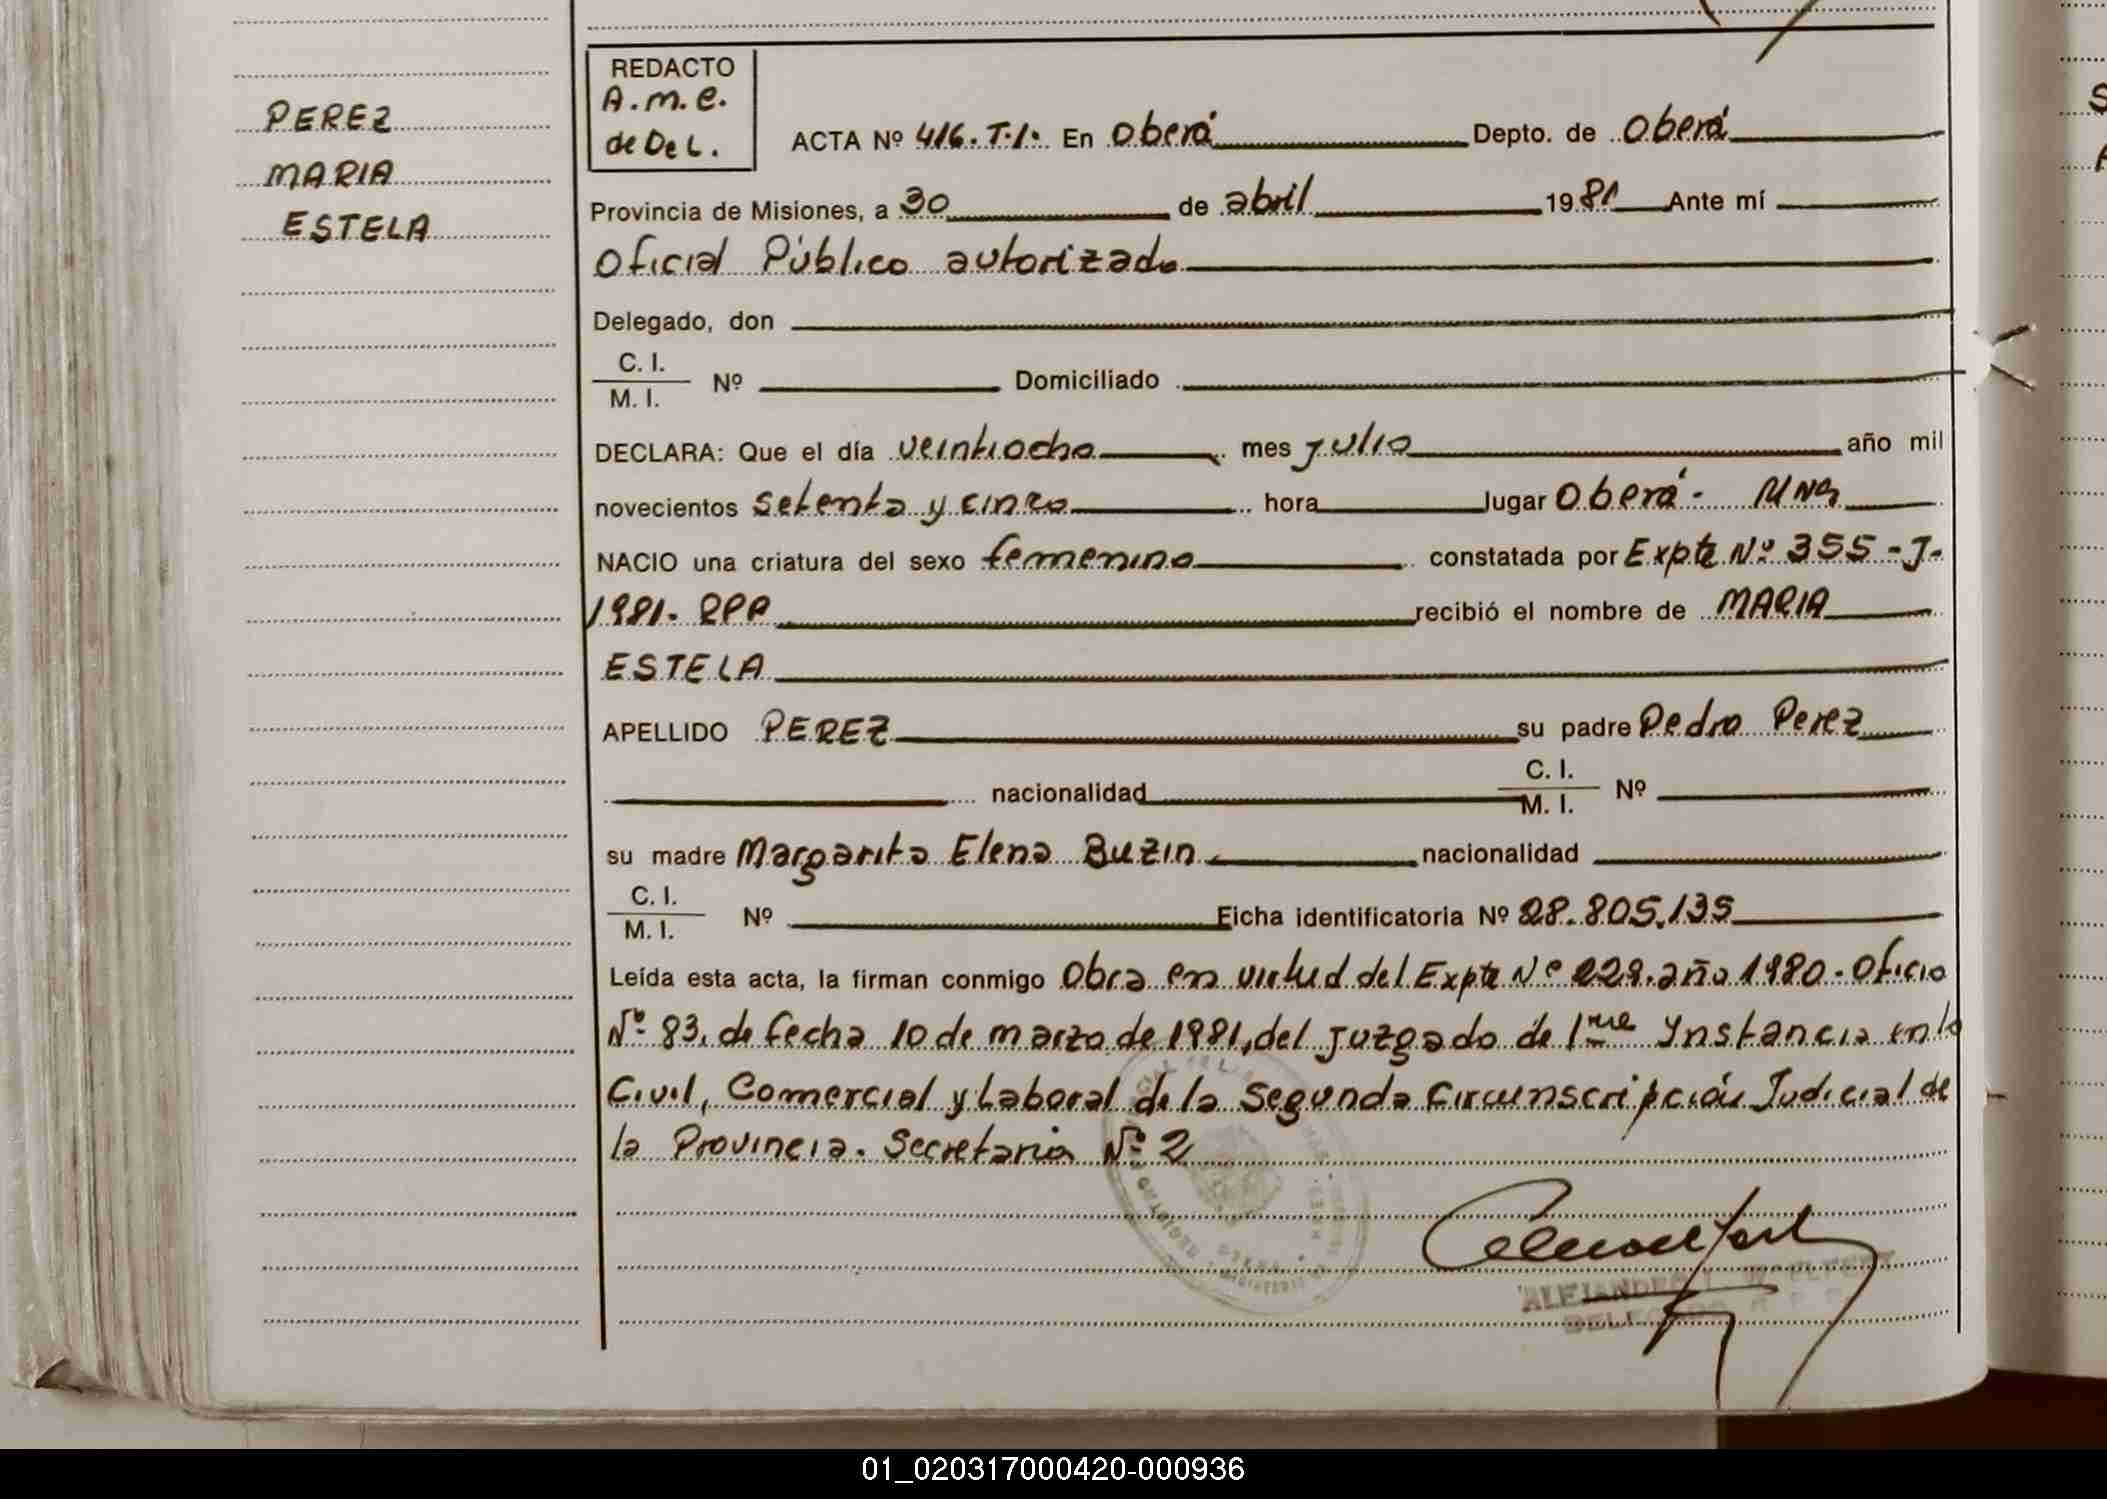 PEREZ
MARIA
ESTELA
REDACTO
A.M.E.
de DeL.
ACTA Nº 416.T.I. En Oberá Depto. de Oberá
Provincia de Misiones, a 30 de abril 1981 Ante mí
Oficial Público autorizado
Delegado, don
C. I.
M. I. Nº Domiciliado
DECLARA: Que el día veintiocho mes julio año mil
novecientos setenta y cinco hora lugar Oberá - Mns
NACIO una criatura del sexo femenino constatada por Expte Nº 355 - J-
1981. RPP recibió el nombre de MARIA
ESTELA
APELLIDO PEREZ su padre Pedro Perez
nacionalidad C. I.
M. I. Nº
su madre Margarita Elena Buzin nacionalidad
C. I.
M. I. Nº Ficha identificatoria Nº 28.805.135
Leída esta acta, la firman conmigo Obra en virtud del Expte Nº 229. año 1980 - Oficio
Nº 83. de fecha 10 de marzo de 1981, del juzgado de 1me Ynstancia en lo
Civil, Comercial y Laboral de la Segunda Circunscripción Judicial de
la Provincia. Secretaria Nº 2
01_020317000420-000936